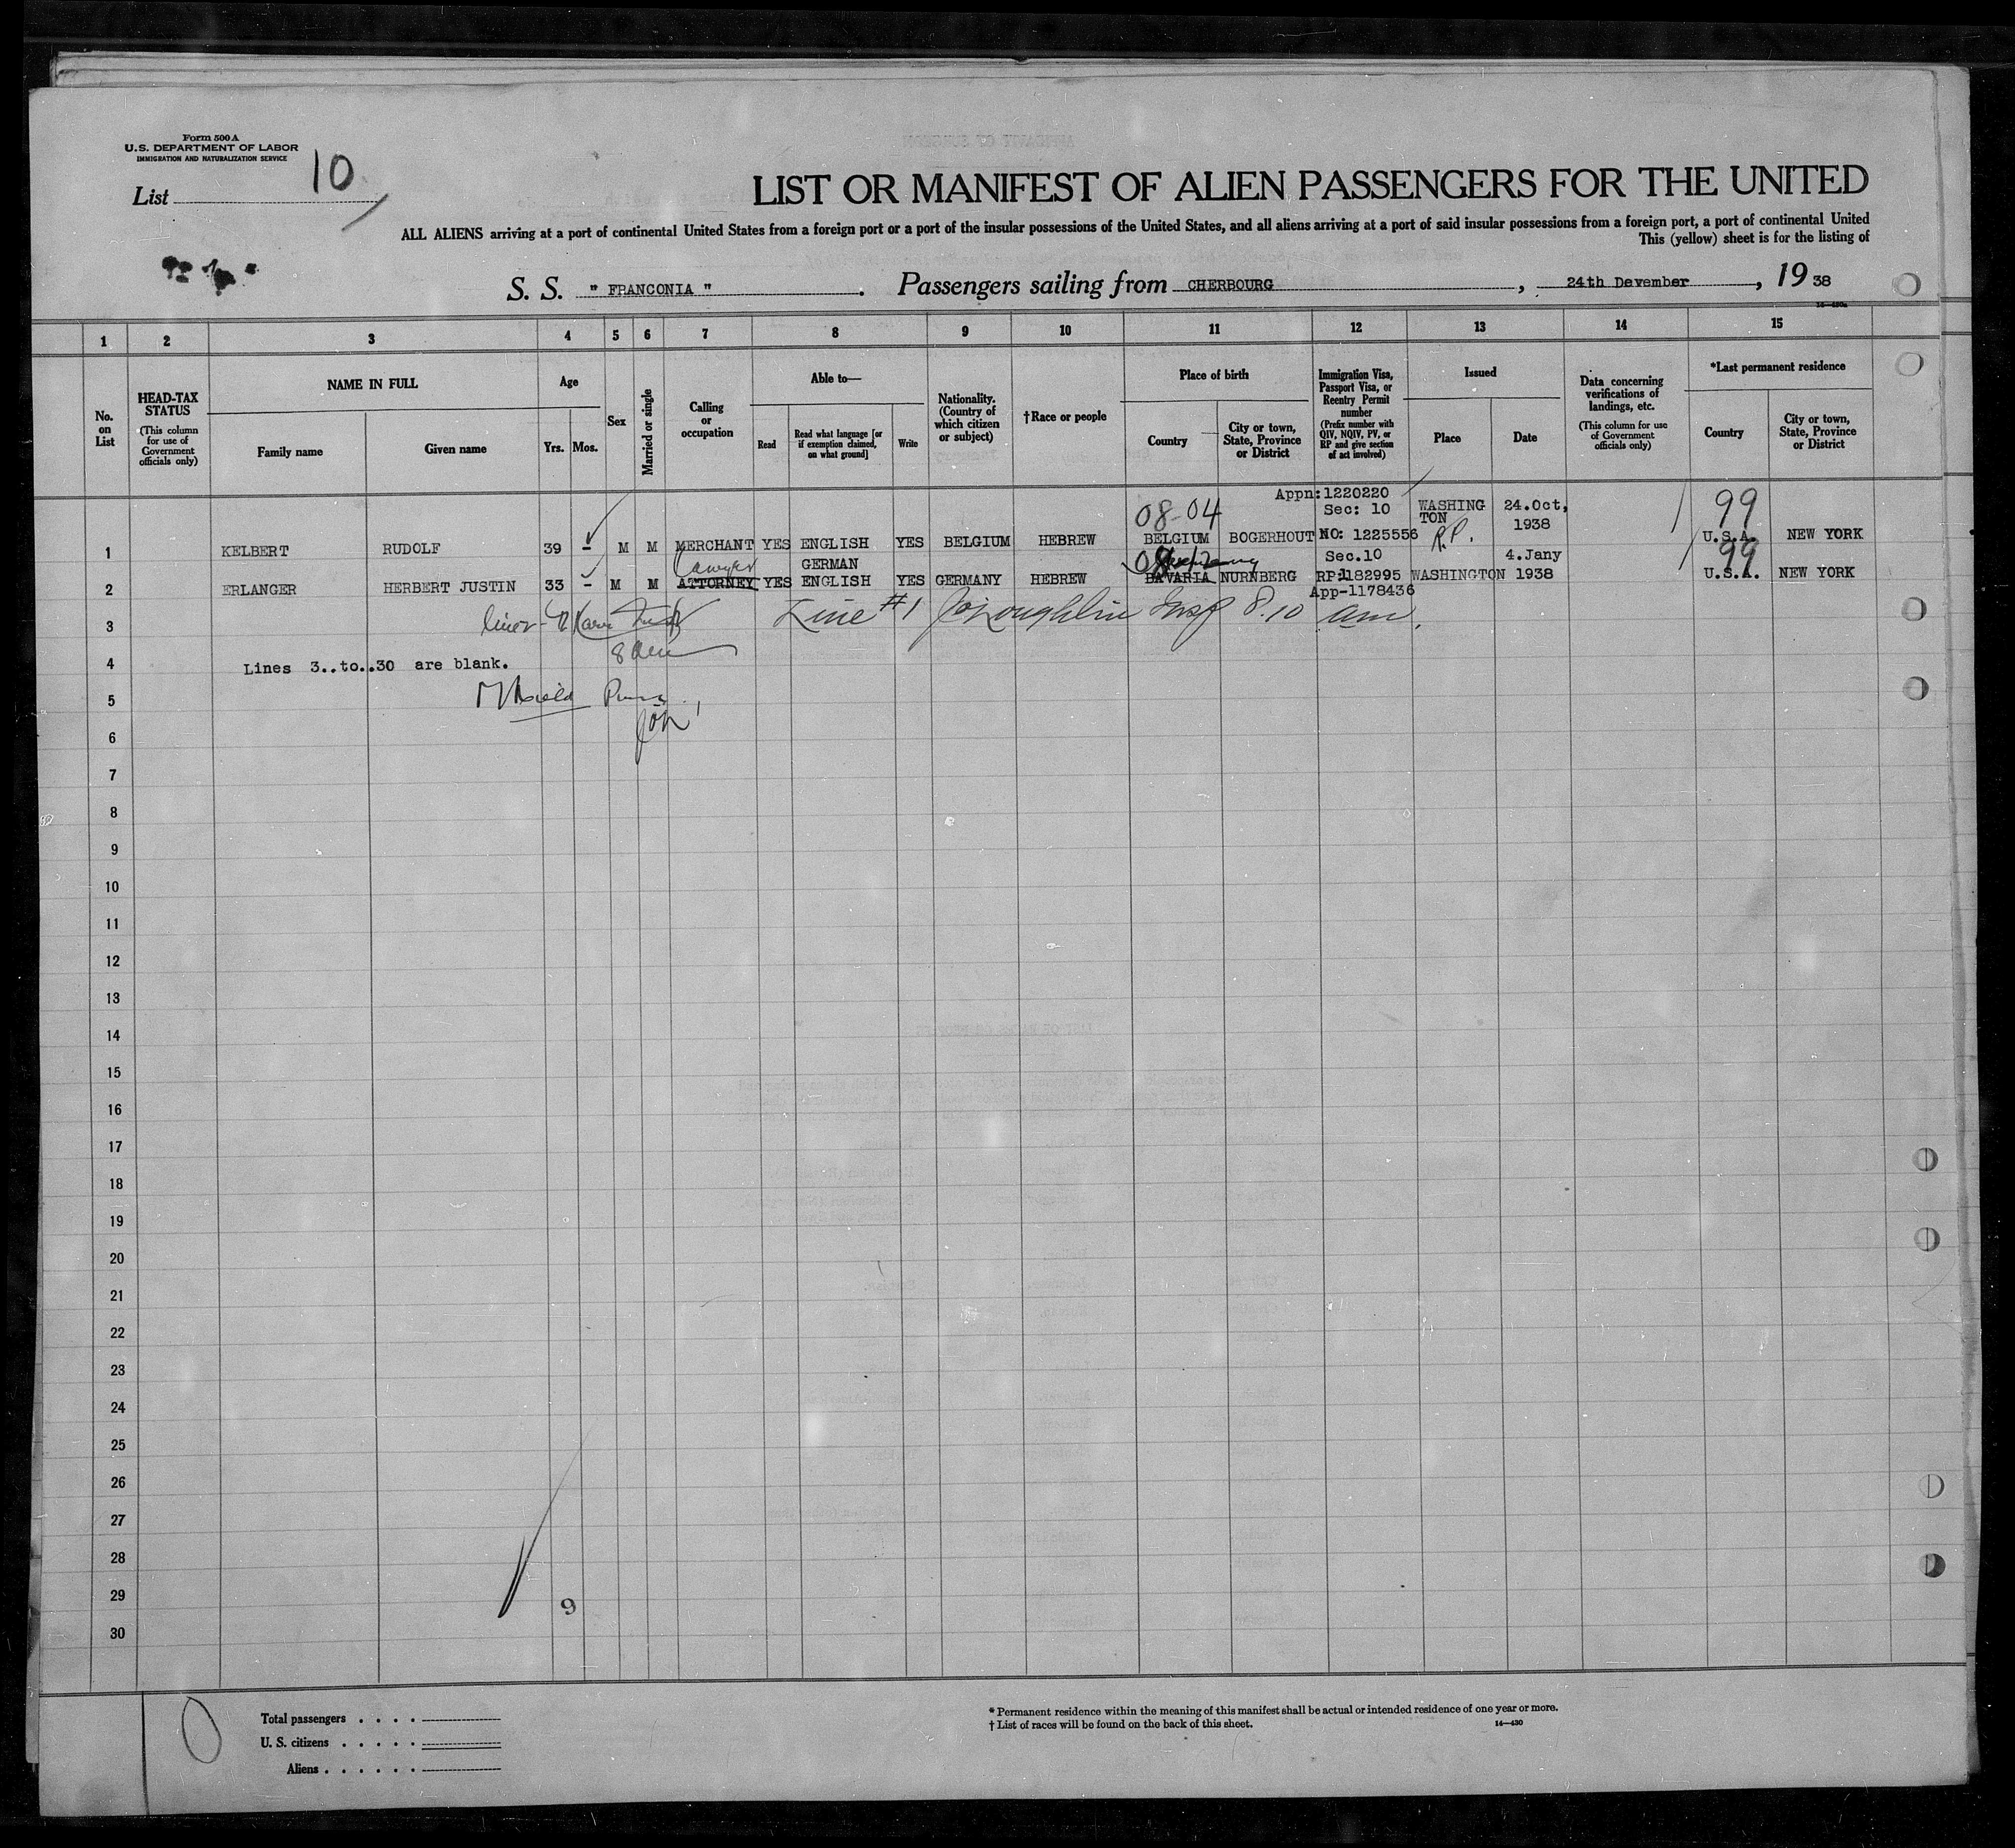 Form 500 A
U. S. DEPARTMENT OF LABOR
IMMIGRATION AND NATURALIZATION SERVICE
List 10
LIST OR MANIFEST OF ALIEN PASSENGERS FOR THE UNITED
ALL ALIENS arriving at a port of continental United States from a foreign port or a port of the insular possessions of the United States, and all aliens arriving at a port of said insular possessions from a foreign port, a port of continental United
This (yellow) sheet is for the listing of
S. S. " FRANCONIA ". Passengers sailing from CHERBOURG, 24th Devember, 19 38
1 2 3 4 5 6 7 8 9 10 11 12 13 14 15
No. on List
HEAD-TAX STATUS
(This column for use of Government officials only)
NAME IN FULL
Family name
Given name
Age
Yrs.
Mos.
Sex
Married or single
Calling or occupation
Able to—
Read
Read what language [or if exemption claimed, on what ground]
Write
Nationality. (Country of which citizen or subject)
†Race or people
Place of birth
Country
City or town, State, Province or District
Immigration Visa, Passport Visa, or Reentry Permit number
(Prefix number with QIV, NQIV, PV, or RP and give section of act involved)
Issued
Place
Date
Data concerning verifications of landings, etc.
(This column for use of Government officials only)
*Last permanent residence
Country
City or town, State, Province or District
Appn: 1220220
08-04 Sec: 10 WASHINGTON 24.Oct, 1938 99
1 KELBERT RUDOLF 39 - M M MERCHANT YES ENGLISH YES BELGIUM HEBREW BELGIUM BOGERHOUT NO: 1225556 R.P. U.S.A. NEW YORK
Lawyer GERMAN Sec.10 4.Jany 99
2 ERLANGER HERBERT JUSTIN 33 - M M ATTORNEY YES ENGLISH YES GERMANY HEBREW BAVARIA NURNBERG RP:1182995 WASHINGTON 1938 U.S.A. NEW YORK
App-1178436
3 Line #1 Insp 8.10 am.
4 Lines 3..to..30 are blank.
5
6
7
8
9
10
11
12
13
14
15
16
17
18
19
20
21
22
23
24
25
26
27
28
29
9
30
Total passengers . . . .
U. S. citizens . . . . .
Aliens . . . . . .
* Permanent residence within the meaning of this manifest shall be actual or intended residence of one year or more.
† List of races will be found on the back of this sheet.
14—430